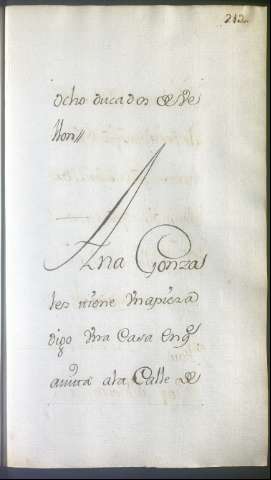 212.
ocho ducados de Ve
llon//
Ana Gonza
les tiene Vna pieza
digo Vna Casa en q̃
auita a la Calle de